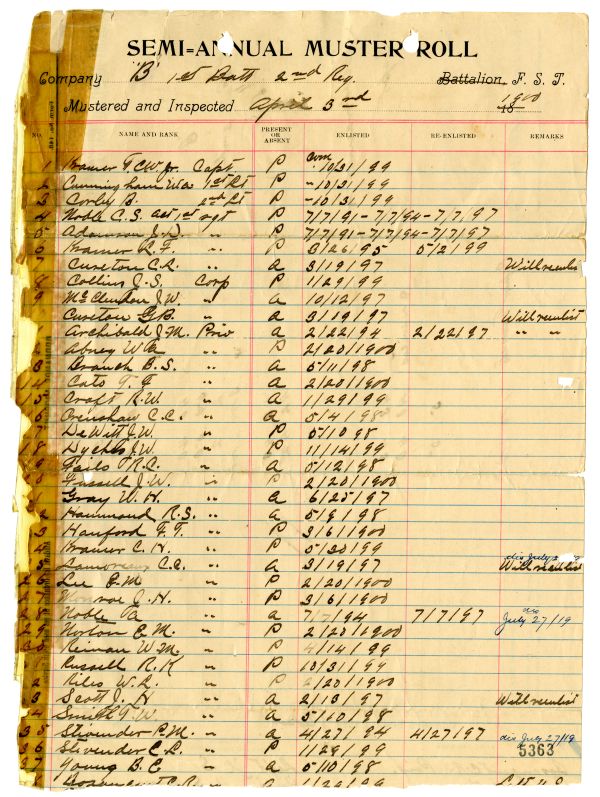 SEMI-ANNUAL MUSTER ROLL
Company "B" 1st Batt 2nd Reg. Battalion, F. S. T.
Mustered and Inspected April 3rd 1900
NO. NAME AND RANK PRESENT OR ABSENT ENLISTED RE-ENLISTED REMARKS
Com
1 Kramer F.C.W. Jr. Capt P 10/31/99
2 Cunningham W.A. 1st Lt P -10/31/99
3 Corley B. 2nd Lt P -10/31/99
4 Noble C.S. act 1st sgt P 7/7/91-7/7/94-7/7/97
5 Adamson J.D. " P 7/7/91-7/7/94-7/7/97
6 Kramer R.F. " P 3/26/95 5/2/99
7 Cureton C.A. " a 3/19/97 Will reenlist
8 Collins J.S. Corp P 1/29/99
9 McClendon J.W. " a 10/12/97
Cureton G.B. " a 3/19/97 Will reenlist
Archibald J.M. Priv a 2/22/94 2/22/97 " "
Abney W.A. " P 2/20/1900
3 Branch B.S. " a 5/11/98
4 Cato T.F. " a 2/20/1900
5 Craft R.W. " a 11/29/99
6 Crenshaw C.C. " a 5/4/98
7 DeWitt J.W. " P 5/10/98
8 Dyches J.W. " P 11/14/99
9 Fails R.A. " a 5/12/98
Fussell J.W. " P 2/20/1900
1 Gray W.H. " a 6/25/97
2 Hammond R.S. " a 5/9/98
3 Hanford F.T. " P 3/6/1900
4 Kramer C.H. " P 5/30/99
dis July
5 C.C. " a 3/19/97 Will reenlist
26 Lee E.M. " P 2/20/1900
27 Monroe J.H. " P 3/6/1900
28 Noble A. " a 7/7/94 7/7/97 dis July 27/19
29 Norton E.M. " P 2/20/1900
30 Reiman W.M. " P 4/14/99
Russell R.K. " P 10/31/99
2 Riles W.R. " P 2/20/1900
3 Scott J.H. " a 2/13/97 Will reenlist
34 Smith F.W. " a 5/10/98
35 Stivender P.M. " a 4/27/94 4/27/97 dis July 27/19
36 Stivender C.L. " P 11/29/99
5363
37 Young B.E. " a 5/10/98